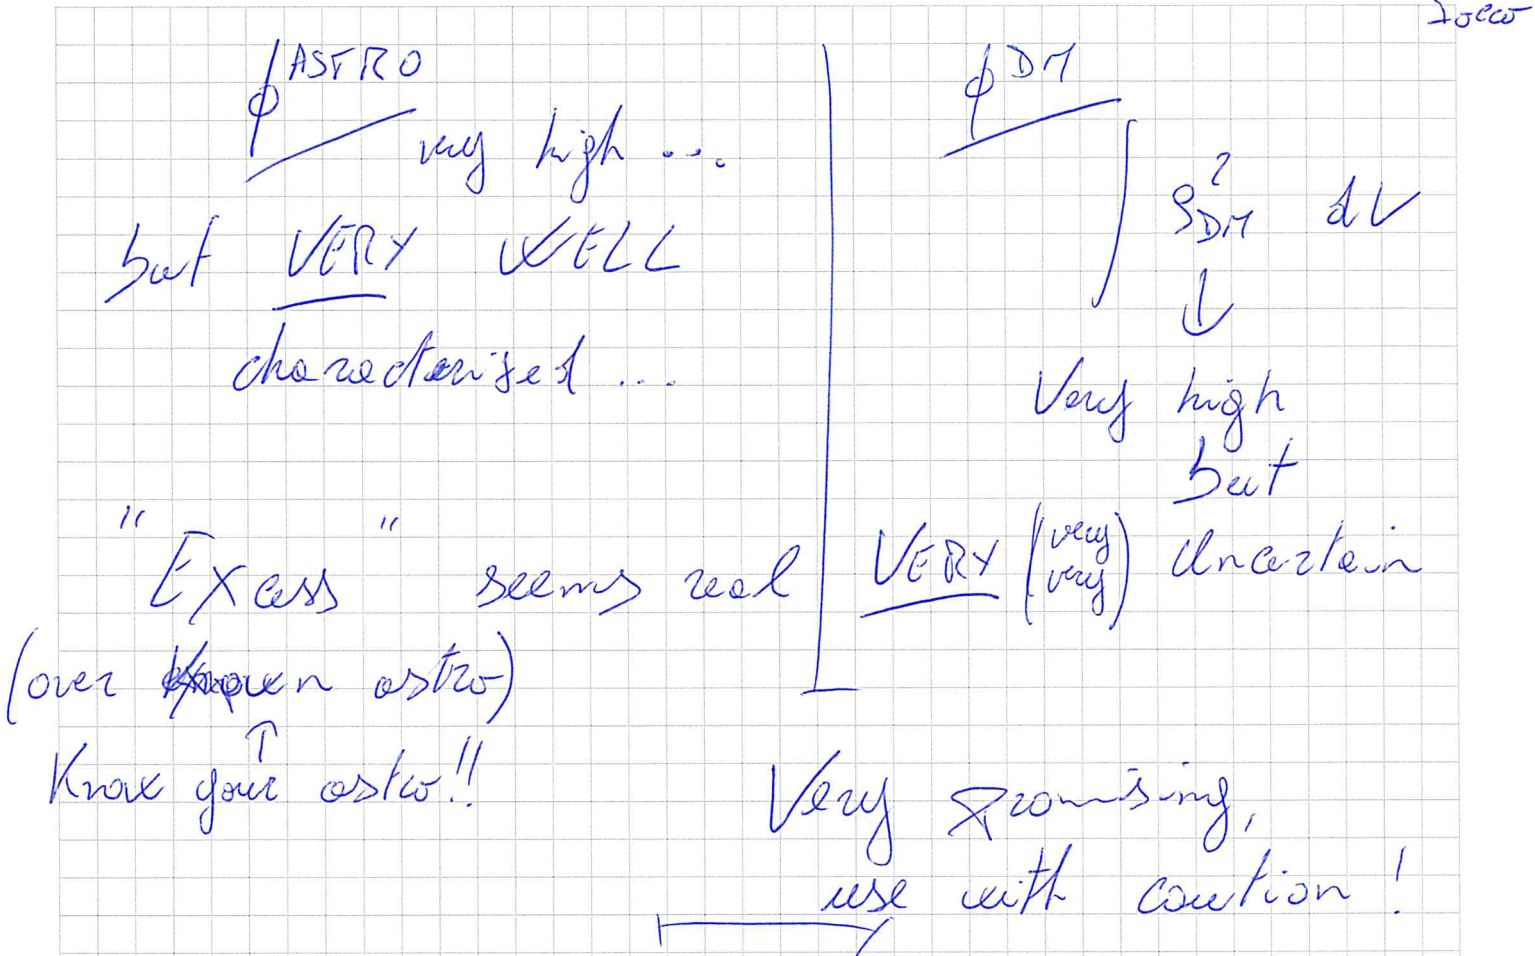 ϕ^ASTRO
very high ...
but VERY WELL
characterised ...
"Excess" seems real
(over known astro)
↑
Know your astro!!
ϕ^DM
∫ ρ²_DM dV
↓
Very high
but
VERY (very very) Uncertain
Very promising,
use with caution!